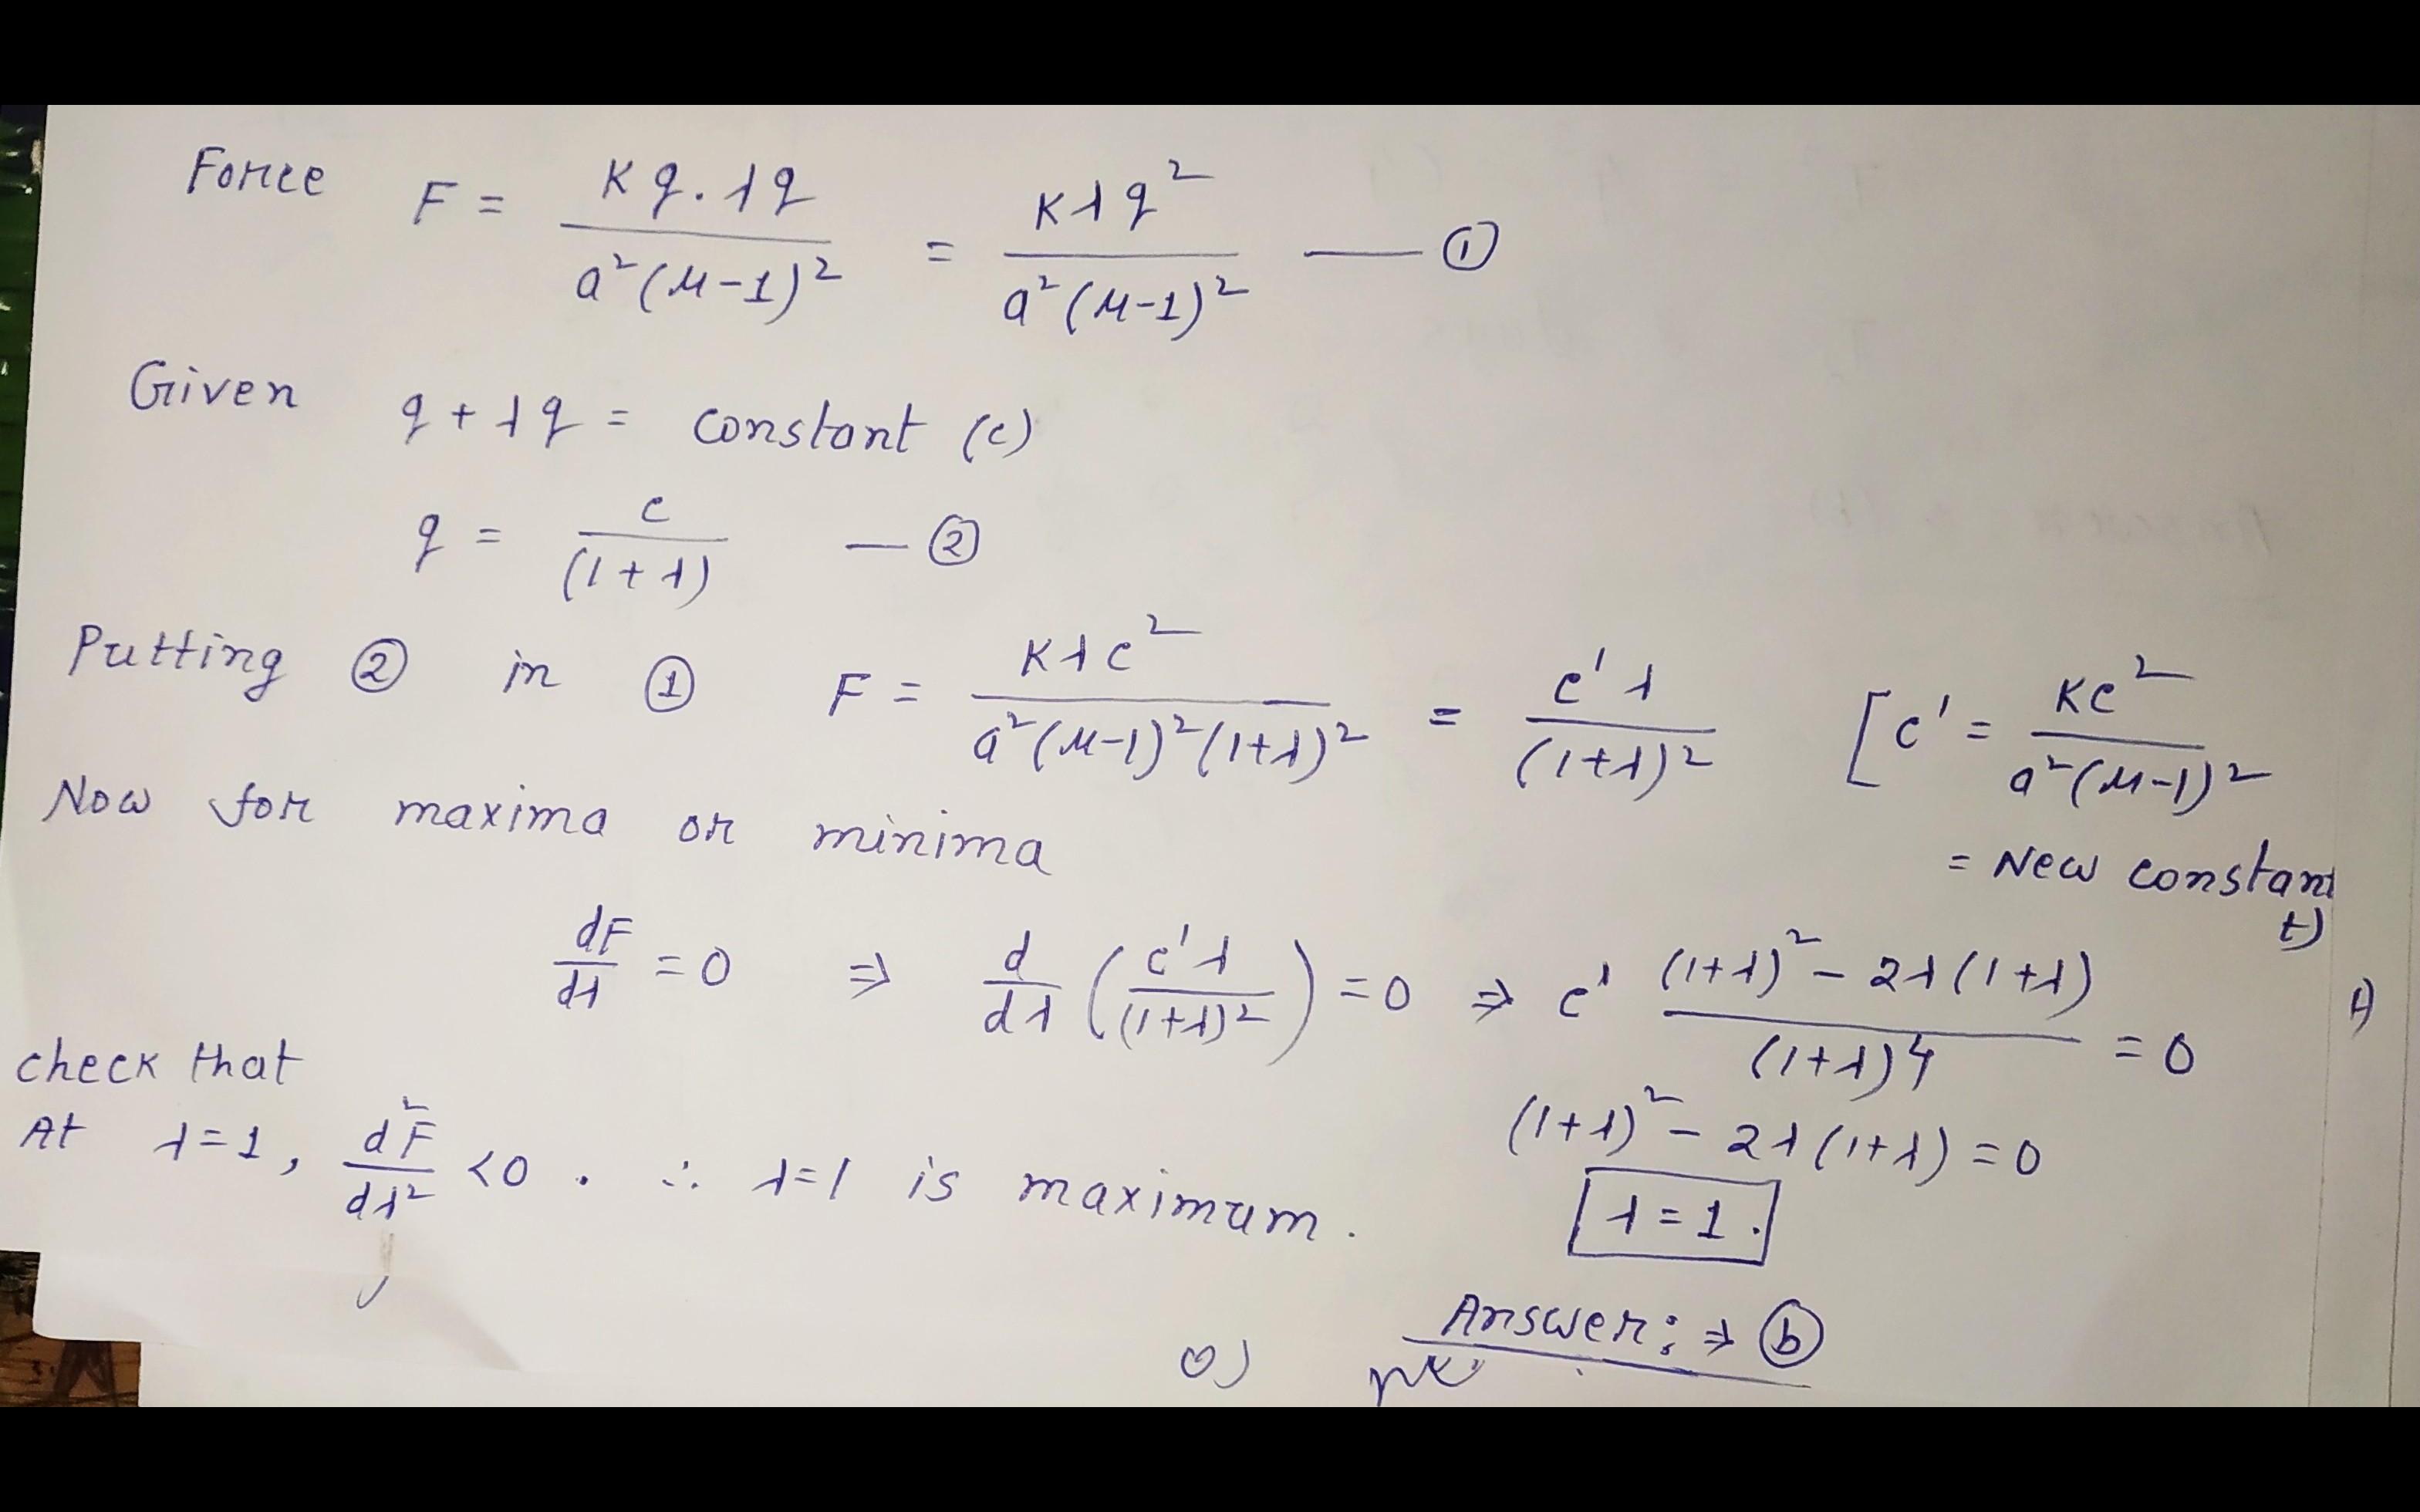 Force F = Kq.λq / a²(μ-1)² = Kλq² / a²(μ-1)² — ①
Given q + λq = constant (c)
q = c / (1+λ) — ②
Putting ② in ① F = Kλc² / a²(μ-1)²(1+λ)² = c'λ / (1+λ)² [c' = Kc² / a²(μ-1)²
= New constant)
Now for maxima or minima
dF/dλ = 0 ⇒ d/dλ (c'λ / (1+λ)²) = 0 ⇒ c' (1+λ)² - 2λ(1+λ) / (1+λ)4 = 0
(1+λ)² - 2λ(1+λ) = 0
λ = 1.
check that
At λ=1, d²F/dλ² <0 . ∴ λ=1 is maximum.
Answer: ⇒ ⓑ